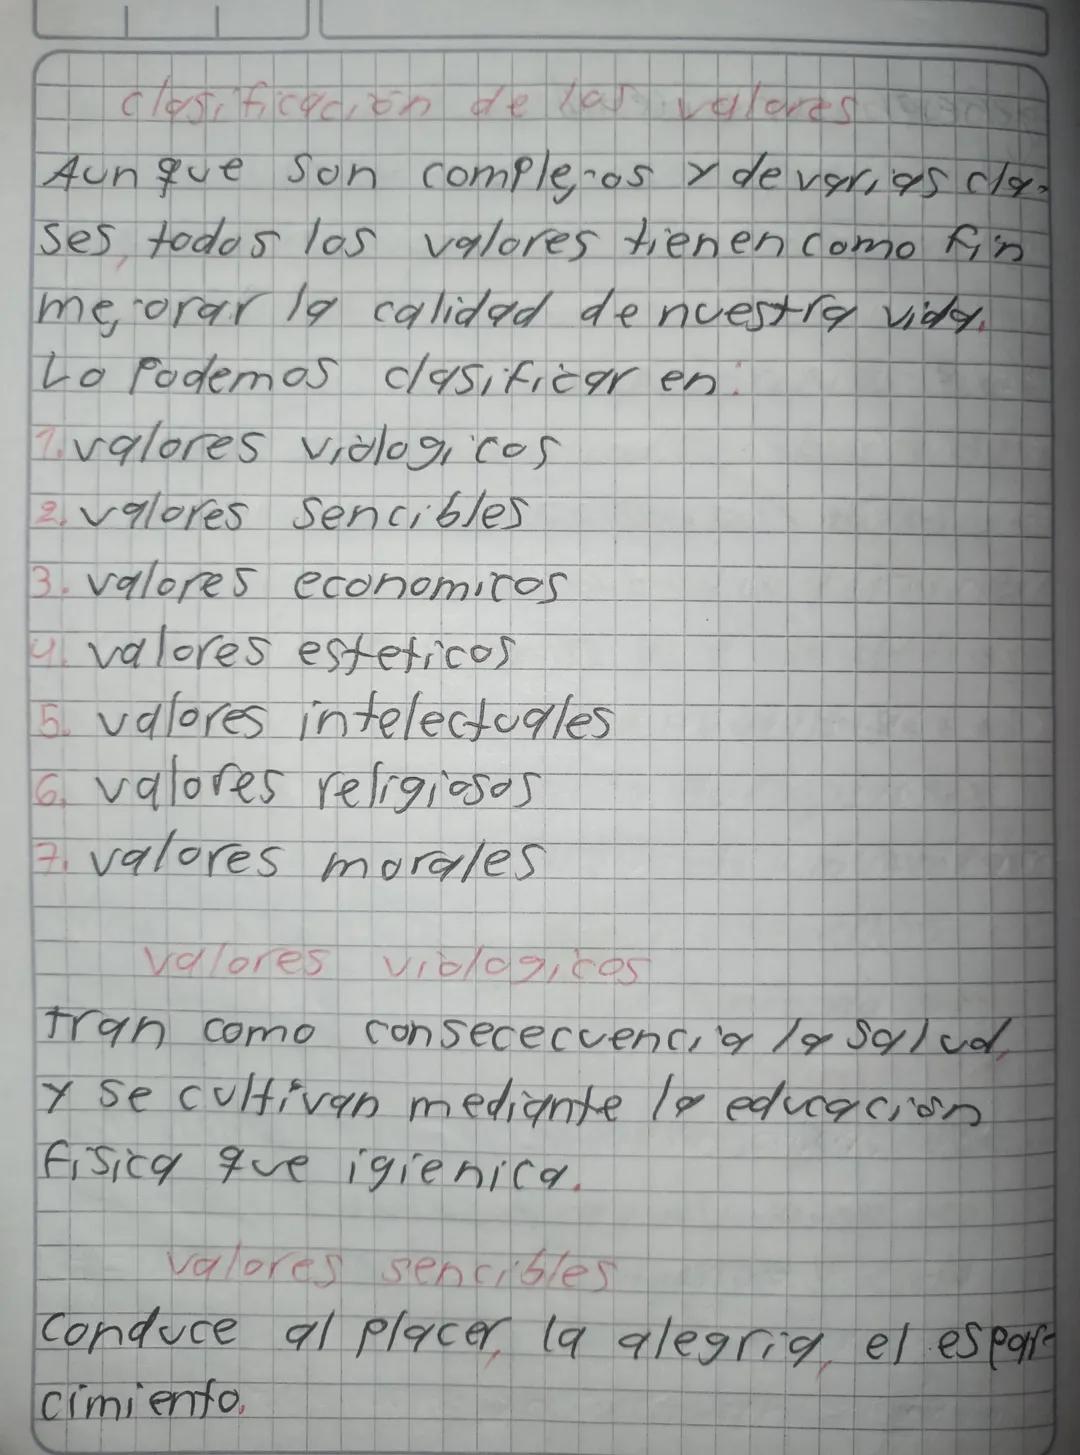 clasificación de los valores
Aunque son complejos y de varias cla-
ses, todos los valores tienen como fin
mejorar la calidad de nuestra vida.
Lo Podemos clasificar en:
1. valores viologicos
2. valores sencibles
3. valores economicos
4. valores esteticos
5. valores intelectuales
6. valores religiosos
7. valores morales
valores viologicos
tran como consececuencia la salud,
y se cultivan mediante la educación
física que igienica.
valores sencibles
conduce al placer, la alegria, el espar-
cimiento.